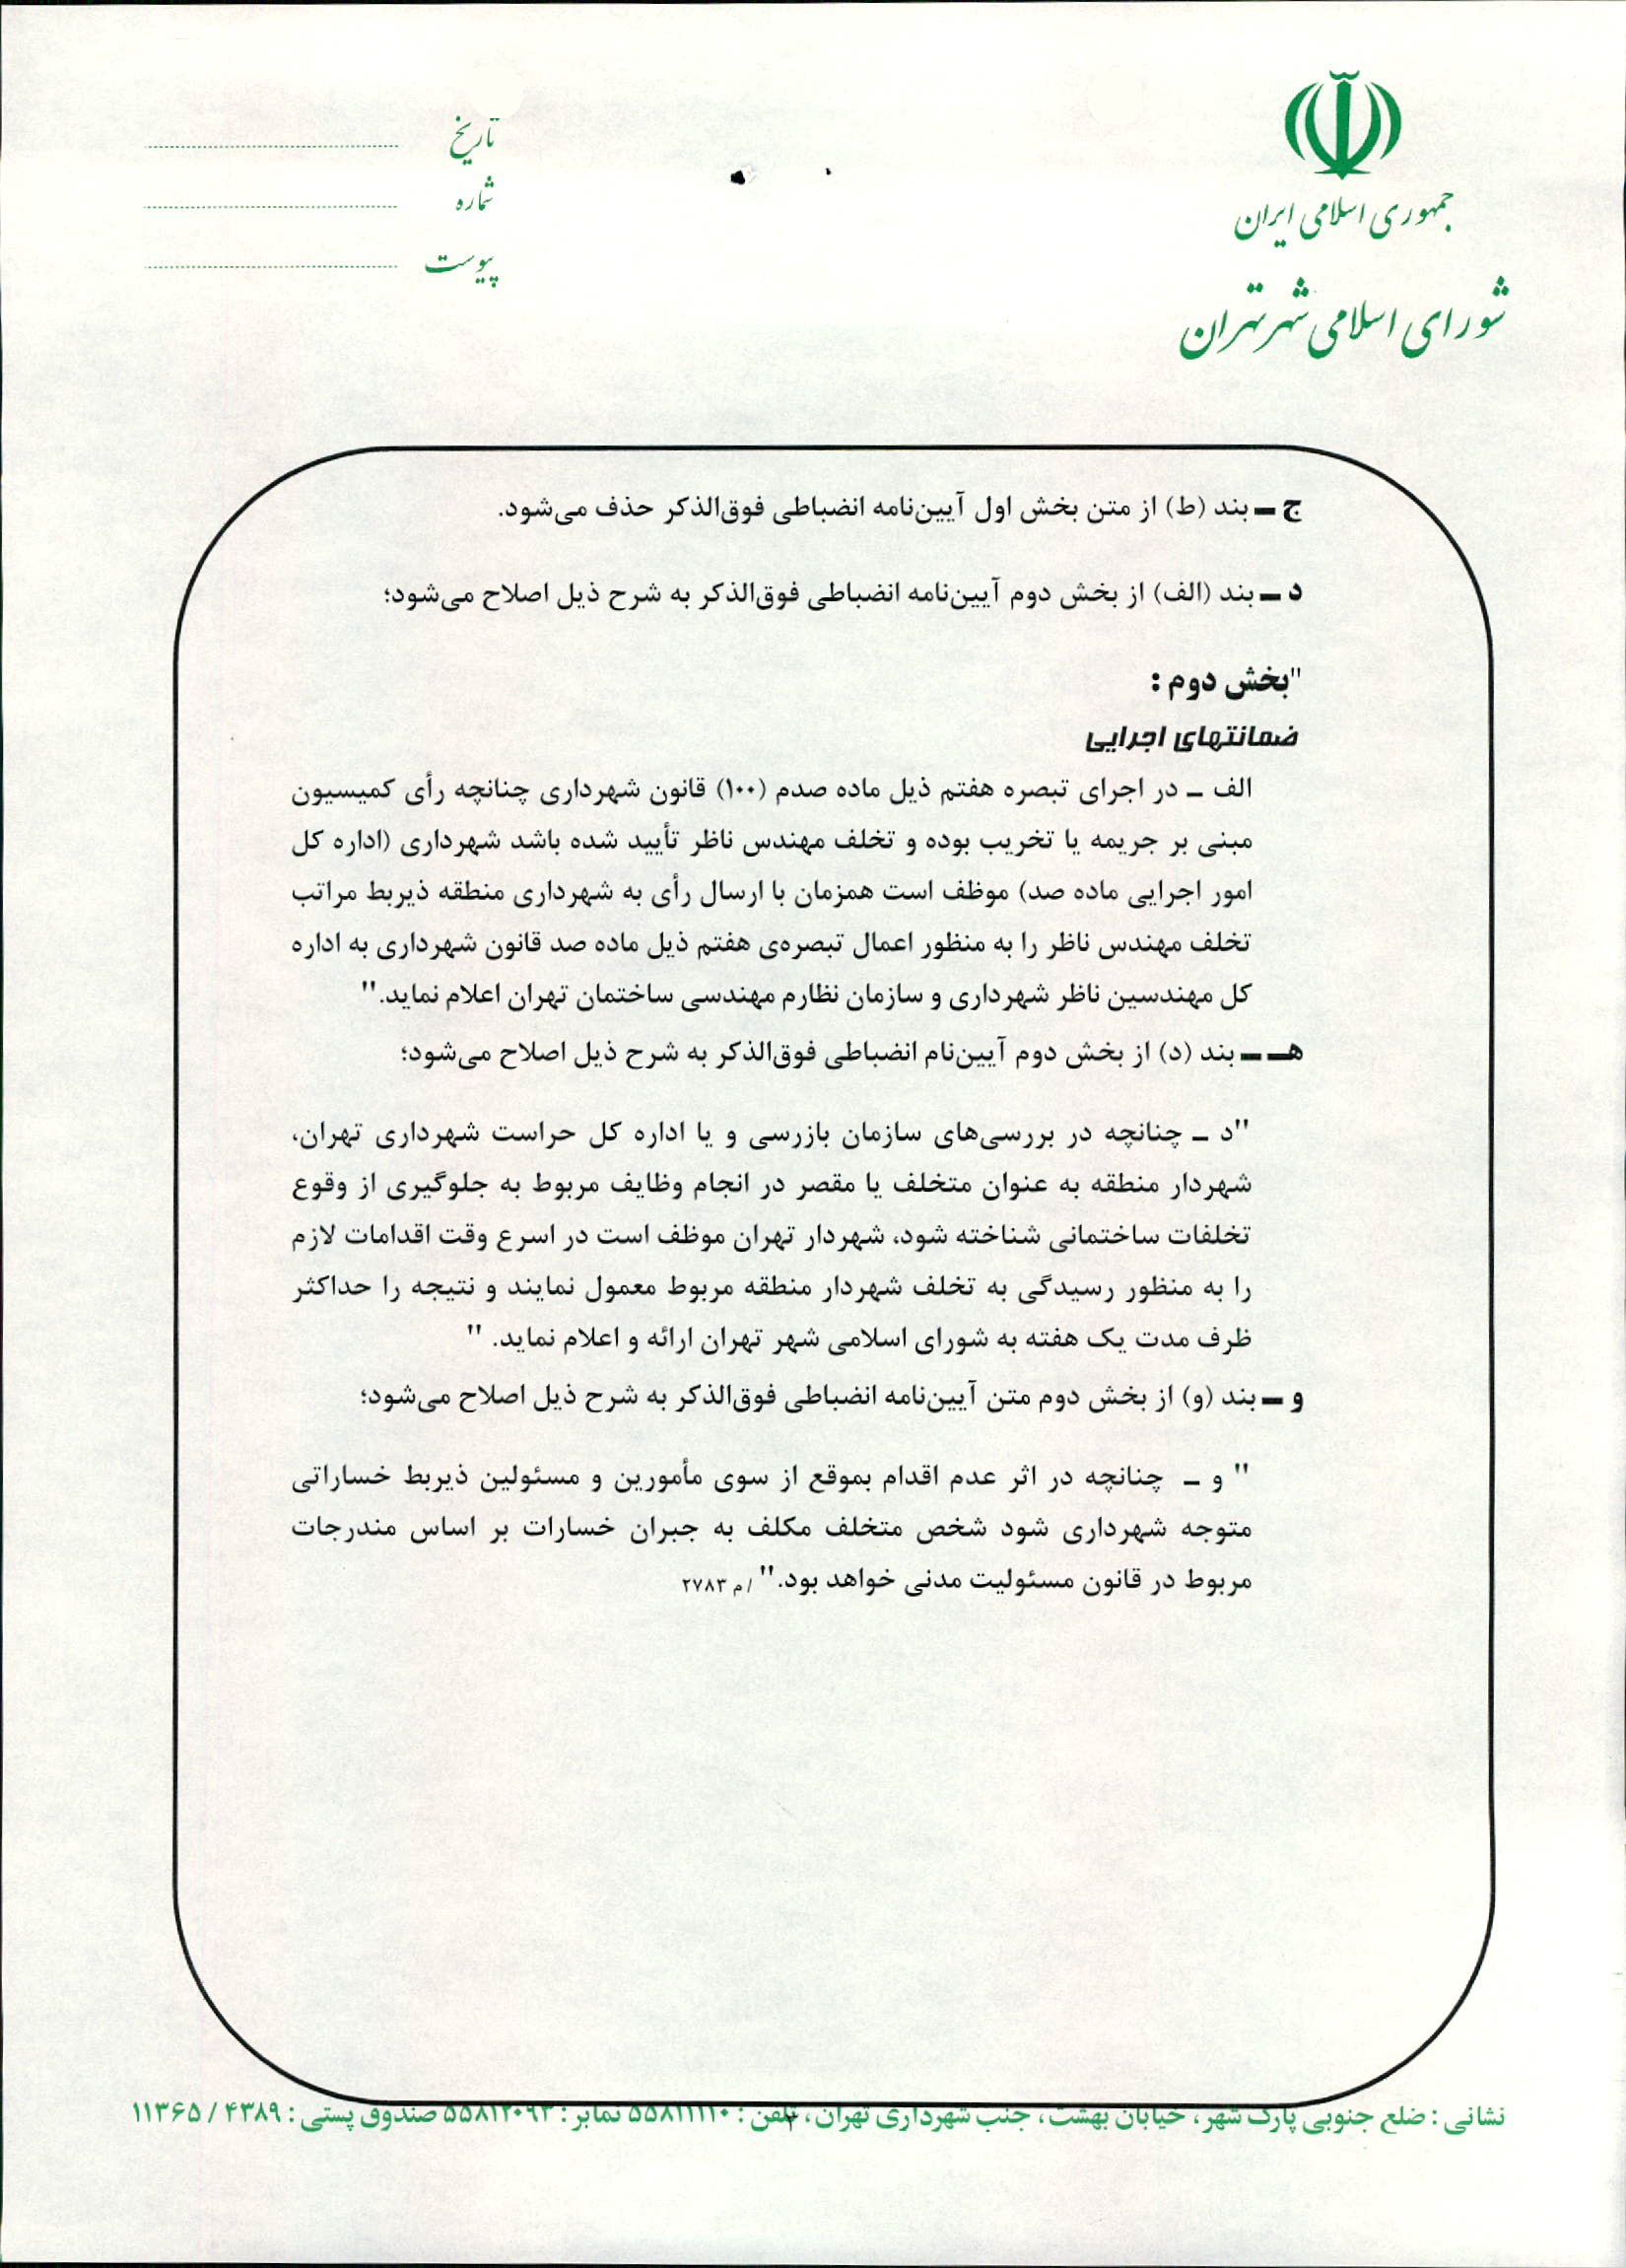 جمهوری اسلامی ایران
شورای اسلامی شهر تهران
تاریخ
شماره
پیوست
ج ـ بند (ط) از متن بخش اول آیین‌نامه انضباطی فوق‌الذکر حذف می‌شود.
د ـ بند (الف) از بخش دوم آیین‌نامه انضباطی فوق‌الذکر به شرح ذیل اصلاح می‌شود؛
"بخش دوم :
ضمانتهای اجرایی
الف ـ در اجرای تبصره هفتم ذیل ماده صدم (۱۰۰) قانون شهرداری چنانچه رأی کمیسیون
مبنی بر جریمه یا تخریب بوده و تخلف مهندس ناظر تأیید شده باشد شهرداری (اداره کل
امور اجرایی ماده صد) موظف است همزمان با ارسال رأی به شهرداری منطقه ذیربط مراتب
تخلف مهندس ناظر را به منظور اعمال تبصره‌ی هفتم ذیل ماده صد قانون شهرداری به اداره
کل مهندسین ناظر شهرداری و سازمان نظارم مهندسی ساختمان تهران اعلام نماید."
هـ ـ بند (د) از بخش دوم آیین‌نام انضباطی فوق‌الذکر به شرح ذیل اصلاح می‌شود؛
"د ـ چنانچه در بررسی‌های سازمان بازرسی و یا اداره کل حراست شهرداری تهران،
شهردار منطقه به عنوان متخلف یا مقصر در انجام وظایف مربوط به جلوگیری از وقوع
تخلفات ساختمانی شناخته شود، شهردار تهران موظف است در اسرع وقت اقدامات لازم
را به منظور رسیدگی به تخلف شهردار منطقه مربوط معمول نمایند و نتیجه را حداکثر
ظرف مدت یک هفته به شورای اسلامی شهر تهران ارائه و اعلام نماید. "
و ـ بند (و) از بخش دوم متن آیین‌نامه انضباطی فوق‌الذکر به شرح ذیل اصلاح می‌شود؛
" و ـ چنانچه در اثر عدم اقدام بموقع از سوی مأمورین و مسئولین ذیربط خساراتی
متوجه شهرداری شود شخص متخلف مکلف به جبران خسارات بر اساس مندرجات
مربوط در قانون مسئولیت مدنی خواهد بود." /م ۲۷۸۳
نشانی : ضلع جنوبی پارک شهر ، خیابان بهشت ، جنب شهرداری تهران ، تلفن : ۵۵۸۱۱۱۱۰ نمابر : ۵۵۸۱۲۰۹۳ صندوق پستی : ۴۳۸۹ / ۱۱۳۶۵
۲